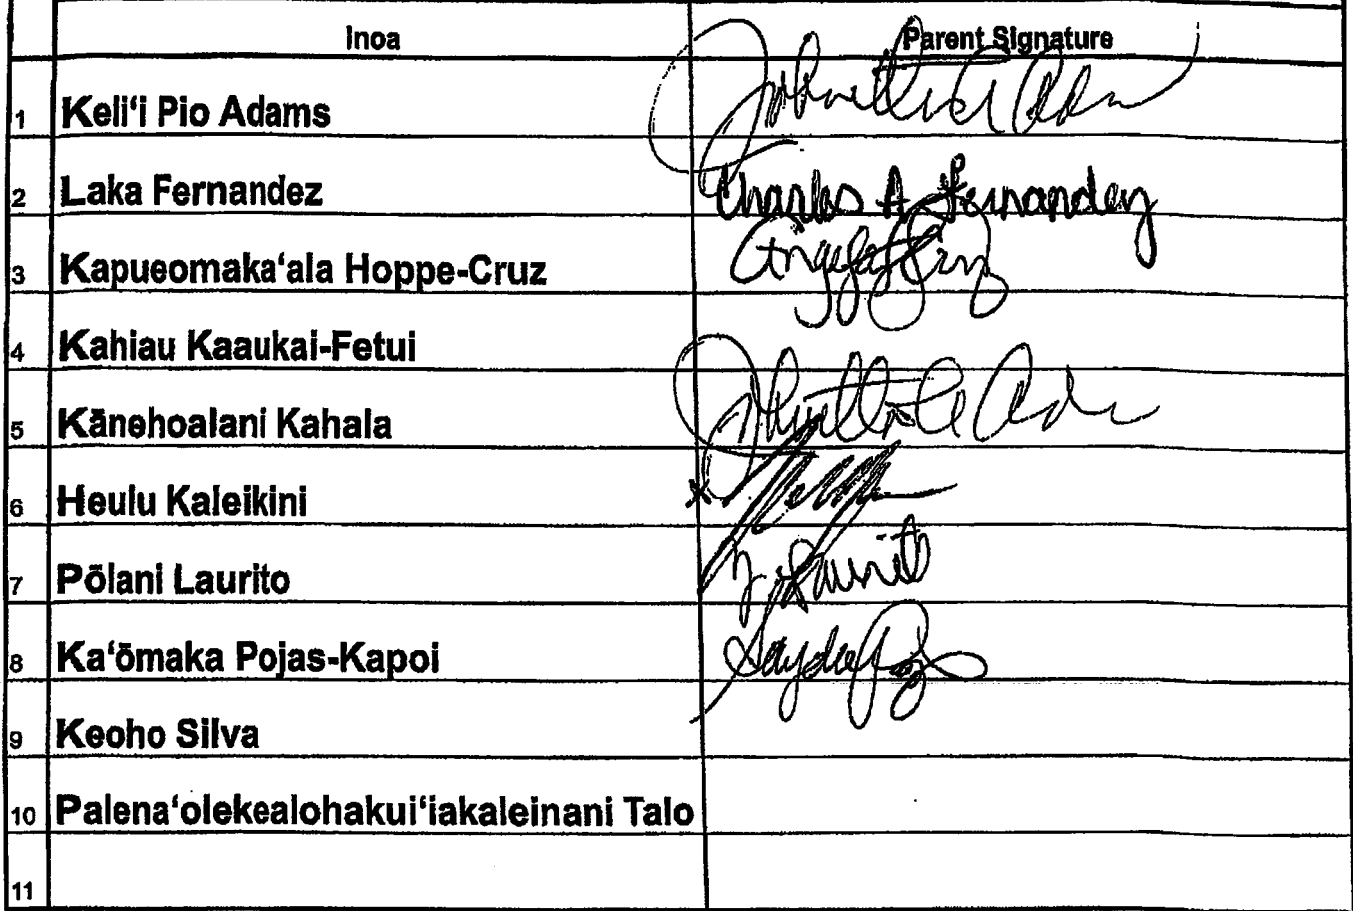 Inoa Parent Signature
1 Keliʻi Pio Adams
2 Laka Fernandez Charles A Fernandez
3 Kapueomakaʻala Hoppe-Cruz
4 Kahiau Kaaukai-Fetui
5 Kānehoalani Kahala
6 Heulu Kaleikini x
7 Pōlani Laurito
8 Kaʻōmaka Pojas-Kapoi
9 Keoho Silva
10 Palenaʻolekealohakuiʻiakaleinani Talo
11